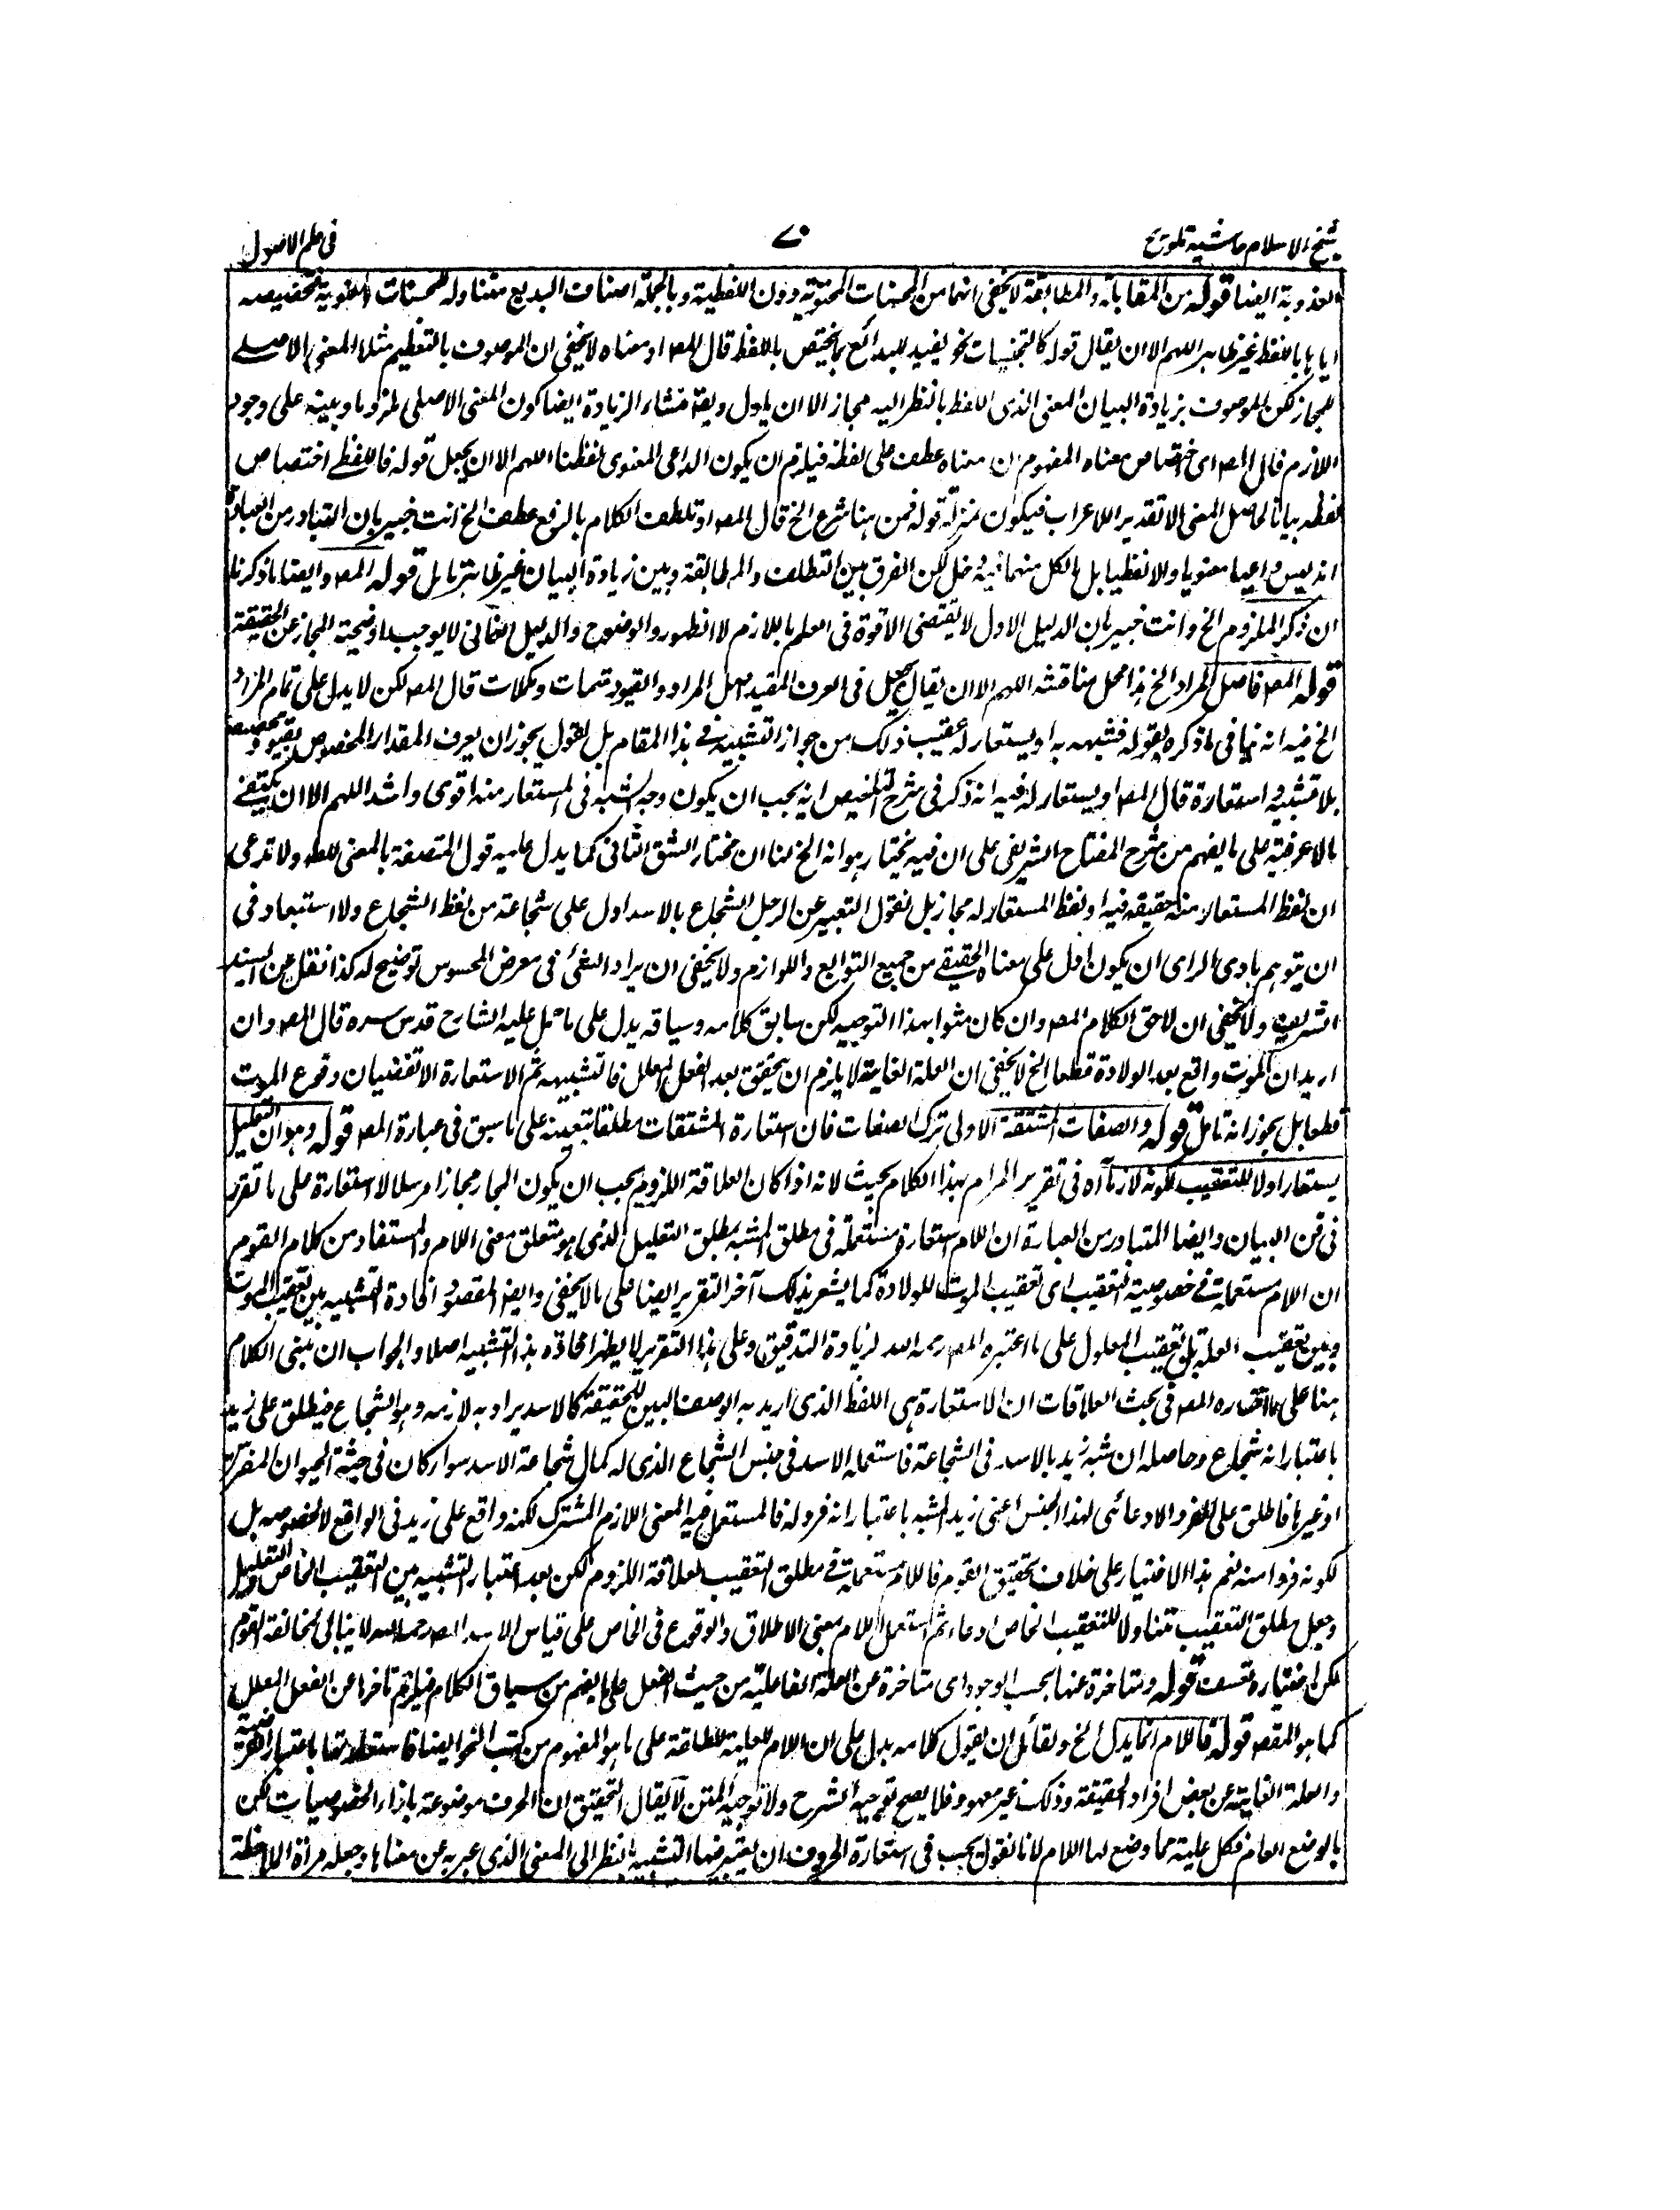 شيخ الاسلام حاشية تلويح ٧٠ فى علم الاصول
العذوبة ايضا قوله من المقابلة والمطابقة لا يخفى انهما من المحسنات المعنوية دون اللفظية وبالجملة اصناف البديع متناولة للمحسنات المعنوية فتخصيصه
اياها باللفظ غير ظاهر اللهم الا ان يقال قوله كالتجنيسات نحو يفيد للبدائع ما يختص باللفظ قال المصـ او معناه لا يخفى ان الموصوف بالتعظيم مثلا المعنى الاصلے
للمجاز لكن الموصوف بزيادة البيان المعنى الذى اللفظ بالنظر اليه مجاز الا ان ياول ويقـ منشاء الزيادة ايضا كون المعنى الاصلى ملزوما وبينة على وجود
اللازم قال المصـ اى اختصاص معناه المفهوم ان معناه عطف على لفظه فيلزم ان يكون الداعى المعنوى لفظنا اللهم الا ان يجعل قوله فاللفظے اختصاص
لفظه بيانا لحاصل المعنى لا تقدير الاعراب فيكون بمنزلة قوله فمن هنا شرع الخ قال المصـ او تلطف الكلام بالرفع عطف الخ انت خبير بان المتبادر من العبارة
انه ليس داعيا معنويا ولا لفظيا بل لكل منهما فيه دخل لكن الفرق بين التلطف والمطابقة وبين زيادة البيان غير ظاهر تامل قوله المصـ وايضا ما ذكرنا
ان ذكر الملزوم الخ وانت خبير بان الدليل الاول لا يقتضى الا قوة فى العلم باللازم لا الظهور والوضوح والدليل الثانى لا يوجب اوضحية المجاز عن الحقيقة
قوله المصـ فاصل المراد الخ هذا محل مناقشة اللهم الا ان يقال يجعل فى العرف المقيد اصل المراد والقيود تتمات ومكملات قال المصـ لكن لا يدل على تمام المراد
الخ فيه انه ينافى ما ذكره بقوله فشبهه به او يستعار له عقيب ذلك من جواز التشبيه فے هذا المقام بل نقول يجوز ان يعرف المقدار المخصوص بقيود مخصصة
بلا تشبيه و استعارة قال المصـ او يستعار له فيه انه ذكر فى شرح التلخيص انه يجب ان يكون وجه الشبه فى المستعار منه اقوى واشد اللهم الا ان يكتفے
بالاعرفية على ما يفهم من شرح المفتاح الشريفى على ان فيه نختار هو انه الخ هنا ان مختار الشق الثانى كما يدل عليه قول المتصفة بالمعنى المطـ ولا تدعى
ان لفظ المستعار منه حقيقة فيه او لفظ المستعار له مجاز بل نقول التعبير عن الرجل الشجاع بالاسد ادل على شجاعته من لفظ الشجاع ولا استبعاد فى
ان يتوهم بادى الراى ان يكون ادل على معناه الحقيقے من جميع التوابع واللوازم ولا يخفى ان يراد الخفى فى معرض المحسوس توضيح له كذا نقل عن السيد
الشريف ولا يخفى ان لاحق الكلام المصـ وان كان مثوا بهذا التوجيه لكن سابق كلامه وسياقه يدل على ما حمل عليه الشارح قدس سره قال المصـ وان
اريد ان الموت واقع بعد الولادة قطعا الخ لا يخفى ان العلة الغاية لا يلزم ان يتحقق بعد الفعل المعلل فالتشبيه ثم الاستعارة لا تقتضيان وقوع الموت
قطعا بل يجوز انه تامل قوله والصفات المشتقة الاولى ترك الصفات فان استعارة المشتقات مطلقا تبعية على ما سبق فى عبارة المصـ قوله وهو ان التعليل
يستعار اولا للتعقيب لكونه لازما آه فى تقرير المرام بهذا الكلام بحيث لانه اذا كان العلاقة اللزوم يجب ان يكون المجاز مجازا مرسلا لا استعارة على ما تقرر
فى فن البيان وايضا المتبادر من العبارة ان اللام استعارة مستعملة فى مطلق المشبه بمطلق التعليل الذى هو متعلق معنى اللام والمستفاد من كلام القوم
ان اللام مستعملة فے خصوصية التعقيب اى تعقيب الموت للولادة كما يشعر بذلك آخر التقرير ايضا على ما لا يخفى وايضا المقصود افادة التشبيه بين تعقيب الموت
وبين تعقيب العلة بل تعقيب المعلول على ما اعتبره المصـ رحمه الله لزيادة التدقيق وعلى هذا التقرير لا يظهر افادة هذا التشبيه اصلا والجواب ان مبنى الكلام
هنا على ما اختاره المصـ فى بحث العلاقات ان الاستعارة هى اللفظ الذى اريد به الوصف البين للحقيقة كالاسد يراد به لازمه وهو الشجاع فيطلق على زيد
باعتبار انه شجاع وحاصله ان شبه زيد بالاسد فى الشجاعة فاستعمله الاسد فى جنس الشجاع الذى له كمال شجاعة الاسد سواء كان فى جثة الحيوان المفترس
او غيرها فاطلق على الفرد الادعائى لهذا الجنس اعنى زيد المشبه باعتبار انه فرد له فالمستعمل فيه المعنى اللازم المشترك لكنه واقع على زيد فى الواقع لا بخصوصه بل
لكونه فردا منه نعم هذا الاختيار على خلاف تحقيق القوم فاللام مستعملة فے مطلق التعقيب لعلاقة اللزوم لكن بعد اعتبار التشبيه بين التعقيب الخاص والتعليل
وجعل مطلق التعقيب متناولا للتعقيب الخاص ادعاء ثم استعمل اللام بمعنى الاطلاق والوقوع فى الخاص على قياس الاسد المصـ رحمه الله لا يبالى بمخالفة القوم
لكن اختياره تعسف قوله ومتاخرة عنها بحسب الوجود اى متاخرة عن العلة الفاعلية من حيث الفعل على ما يفهم من سياق الكلام فيلزم تاخرها عن الفعل المعلل
كما هو المقصـ قوله فاللام انما يدل الخ ولقائل ان يقول كلامه يدل على ان اللام للعلية المطلقة على ما هو المفهوم من كتب النحو ايضا فاستعمالها باعتبار
والعلة الغائية عن بعض افراد الحقيقة وذلك غير معهود فلا يصح توجيه الشرح ولا توجيه المتن لا يقال التحقيق ان الحرف موضوعة بازاء الخصوصيات لكن
بالوضع العام فكل علية مما وضع لها اللام لانا نقول يجب فى استعارة الحروف ان يعتبر فيها التشبيه بالنظر الى المعنى الذى عبر به عن معناها وجعله مرآة الملاحظة